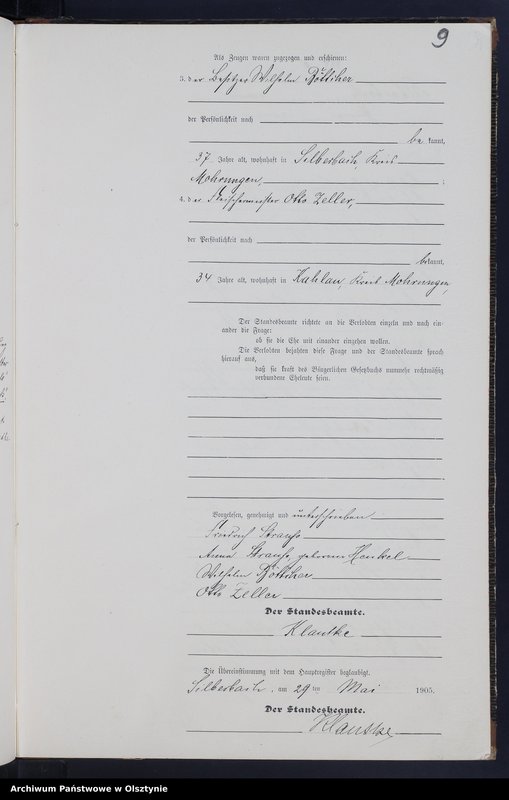 9
Als Zeugen waren zugezogen und erschienen:
3. der Besitzer Wilhelm Böttcher
der Persönlichkeit nach
be kannt,
37 Jahre alt, wohnhaft in Silberbach, Kreis
Mohrungen, ;
4. der Fleischermeister Otto Zeller,
der Persönlichkeit nach
bekannt,
34 Jahre alt, wohnhaft in Kahlau, Kreis Mohrungen,
Der Standesbeamte richtete an die Verlobten einzeln und nach ein-
ander die Frage:
ob sie die Ehe mit einander eingehen wollen.
Die Verlobten bejahten diese Frage und der Standesbeamte sprach
hierauf aus,
daß sie kraft des Bürgerlichen Gesetzbuchs nunmehr rechtmäßig
verbundene Eheleute seien.
Vorgelesen, genehmigt und unterschrieben
Friedrich Strauß
Anna Strauß, geborene Henkel
Wilhelm Böttcher
Otto Zeller
Der Standesbeamte.
Klautke
Die Übereinstimmung mit dem Hauptregister beglaubigt.
Silberbach, am 29 ten Mai 1905.
Der Standesbeamte.
Klautke
Archiwum Państwowe w Olsztynie